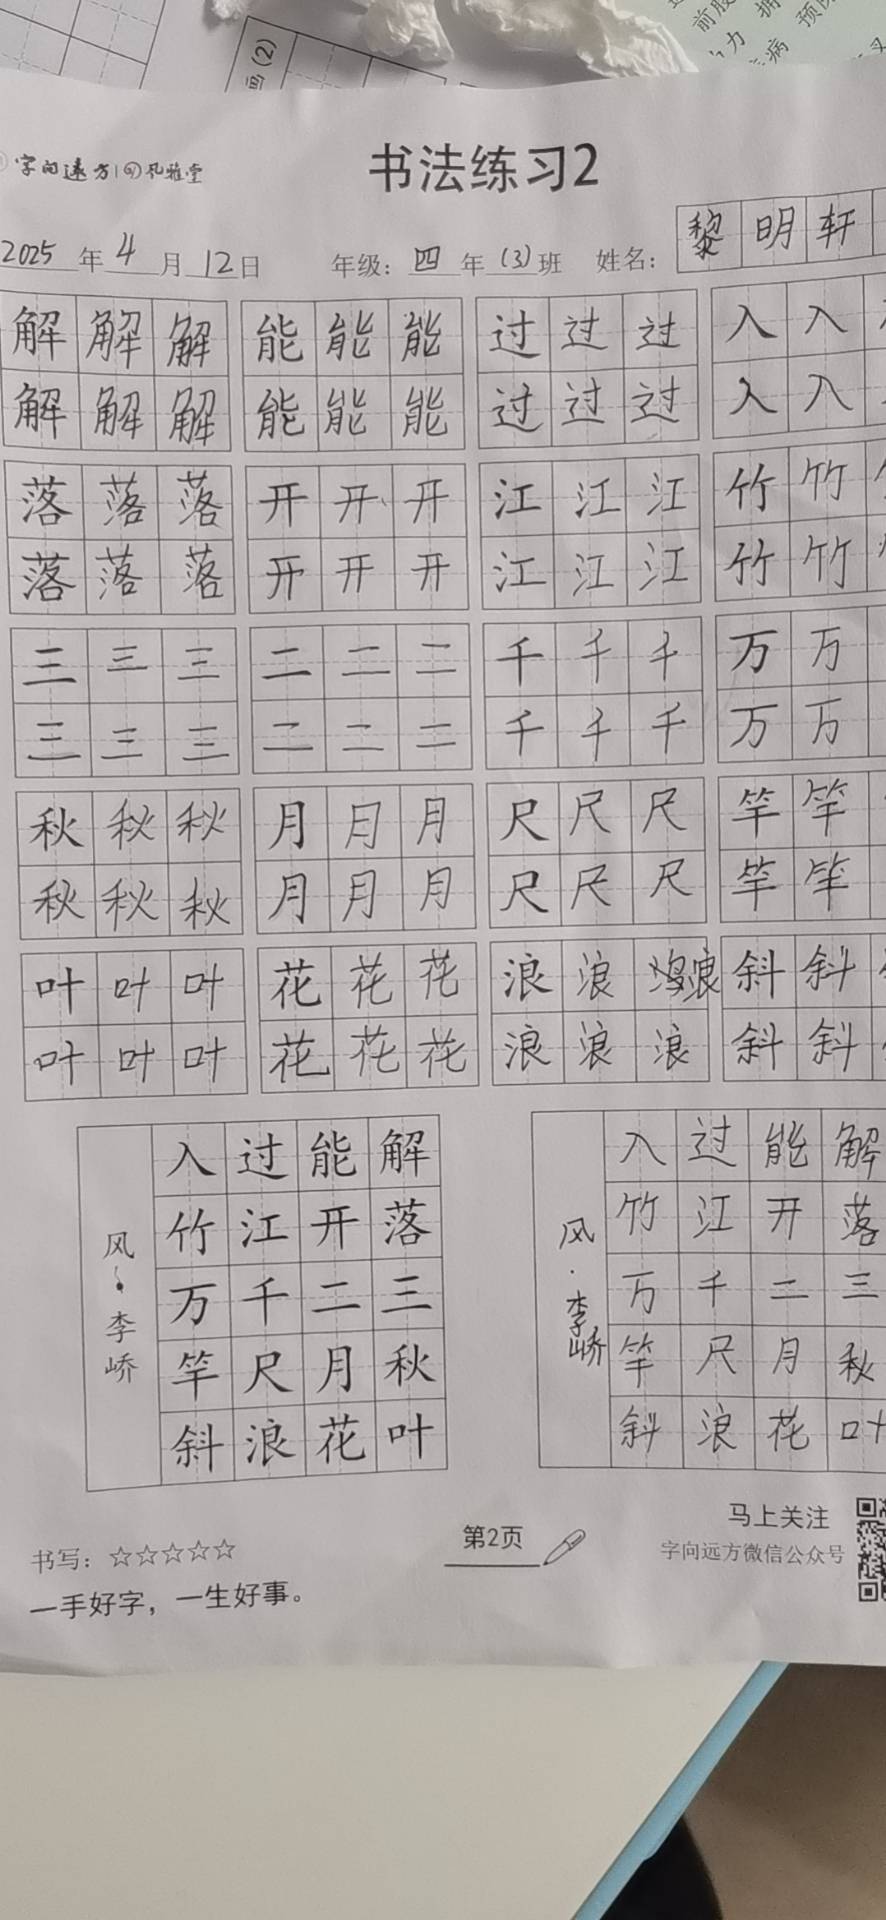 画(2)
前股
力 拥
病 预防
字向远方 风雅堂
书法练习2
2025年4月12日 年级：四年(3)班 姓名：黎明轩
解解解 能能能 过过过 入入
解解解 能能能 过过过 入入
落落落 开开开 江江江 竹竹
落落落 开开开 江江江 竹竹
三三三 二二二 千千千 万万
三三三 二二二 千千千 万万
秋秋秋 月月月 尺尺尺 竿竿
秋秋秋 月月月 尺尺尺 竿竿
叶叶叶 花花花 浪浪浪 斜斜
叶叶叶 花花花 浪浪浪 斜斜
风·李峤
入过能解
竹江开落
万千二三
竿尺月秋
斜浪花叶
风·李峤
入过能解
竹江开落
万千二三
竿尺月秋
斜浪花叶
书写：☆☆☆☆☆
一手好字，一生好事。
第2页
马上关注
字向远方微信公众号